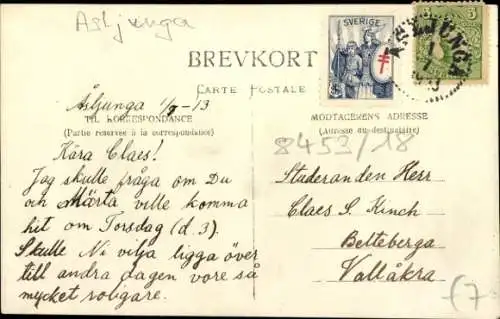 Asljunga
BREVKORT
CARTE POSTALE
SVERIGE
ASLJUNGA
5
Åsljunga 1/7 -13
TIL KORRESPONDANCE
(Partie reservée à la correspondance)
Kära Claes!
Jag skulle fråga om Du
och Märta ville komma
hit om Torsdag (d. 3).
Skulle Ni vilja ligga över
till andra dagen vore så
mycket roligare.
MODTAGERENS ADRESSE
(Adresse du destinataire)
8453/18
Studeranden Herr
Claes S. Kinch
Belteberga
Vallåkra
(7.